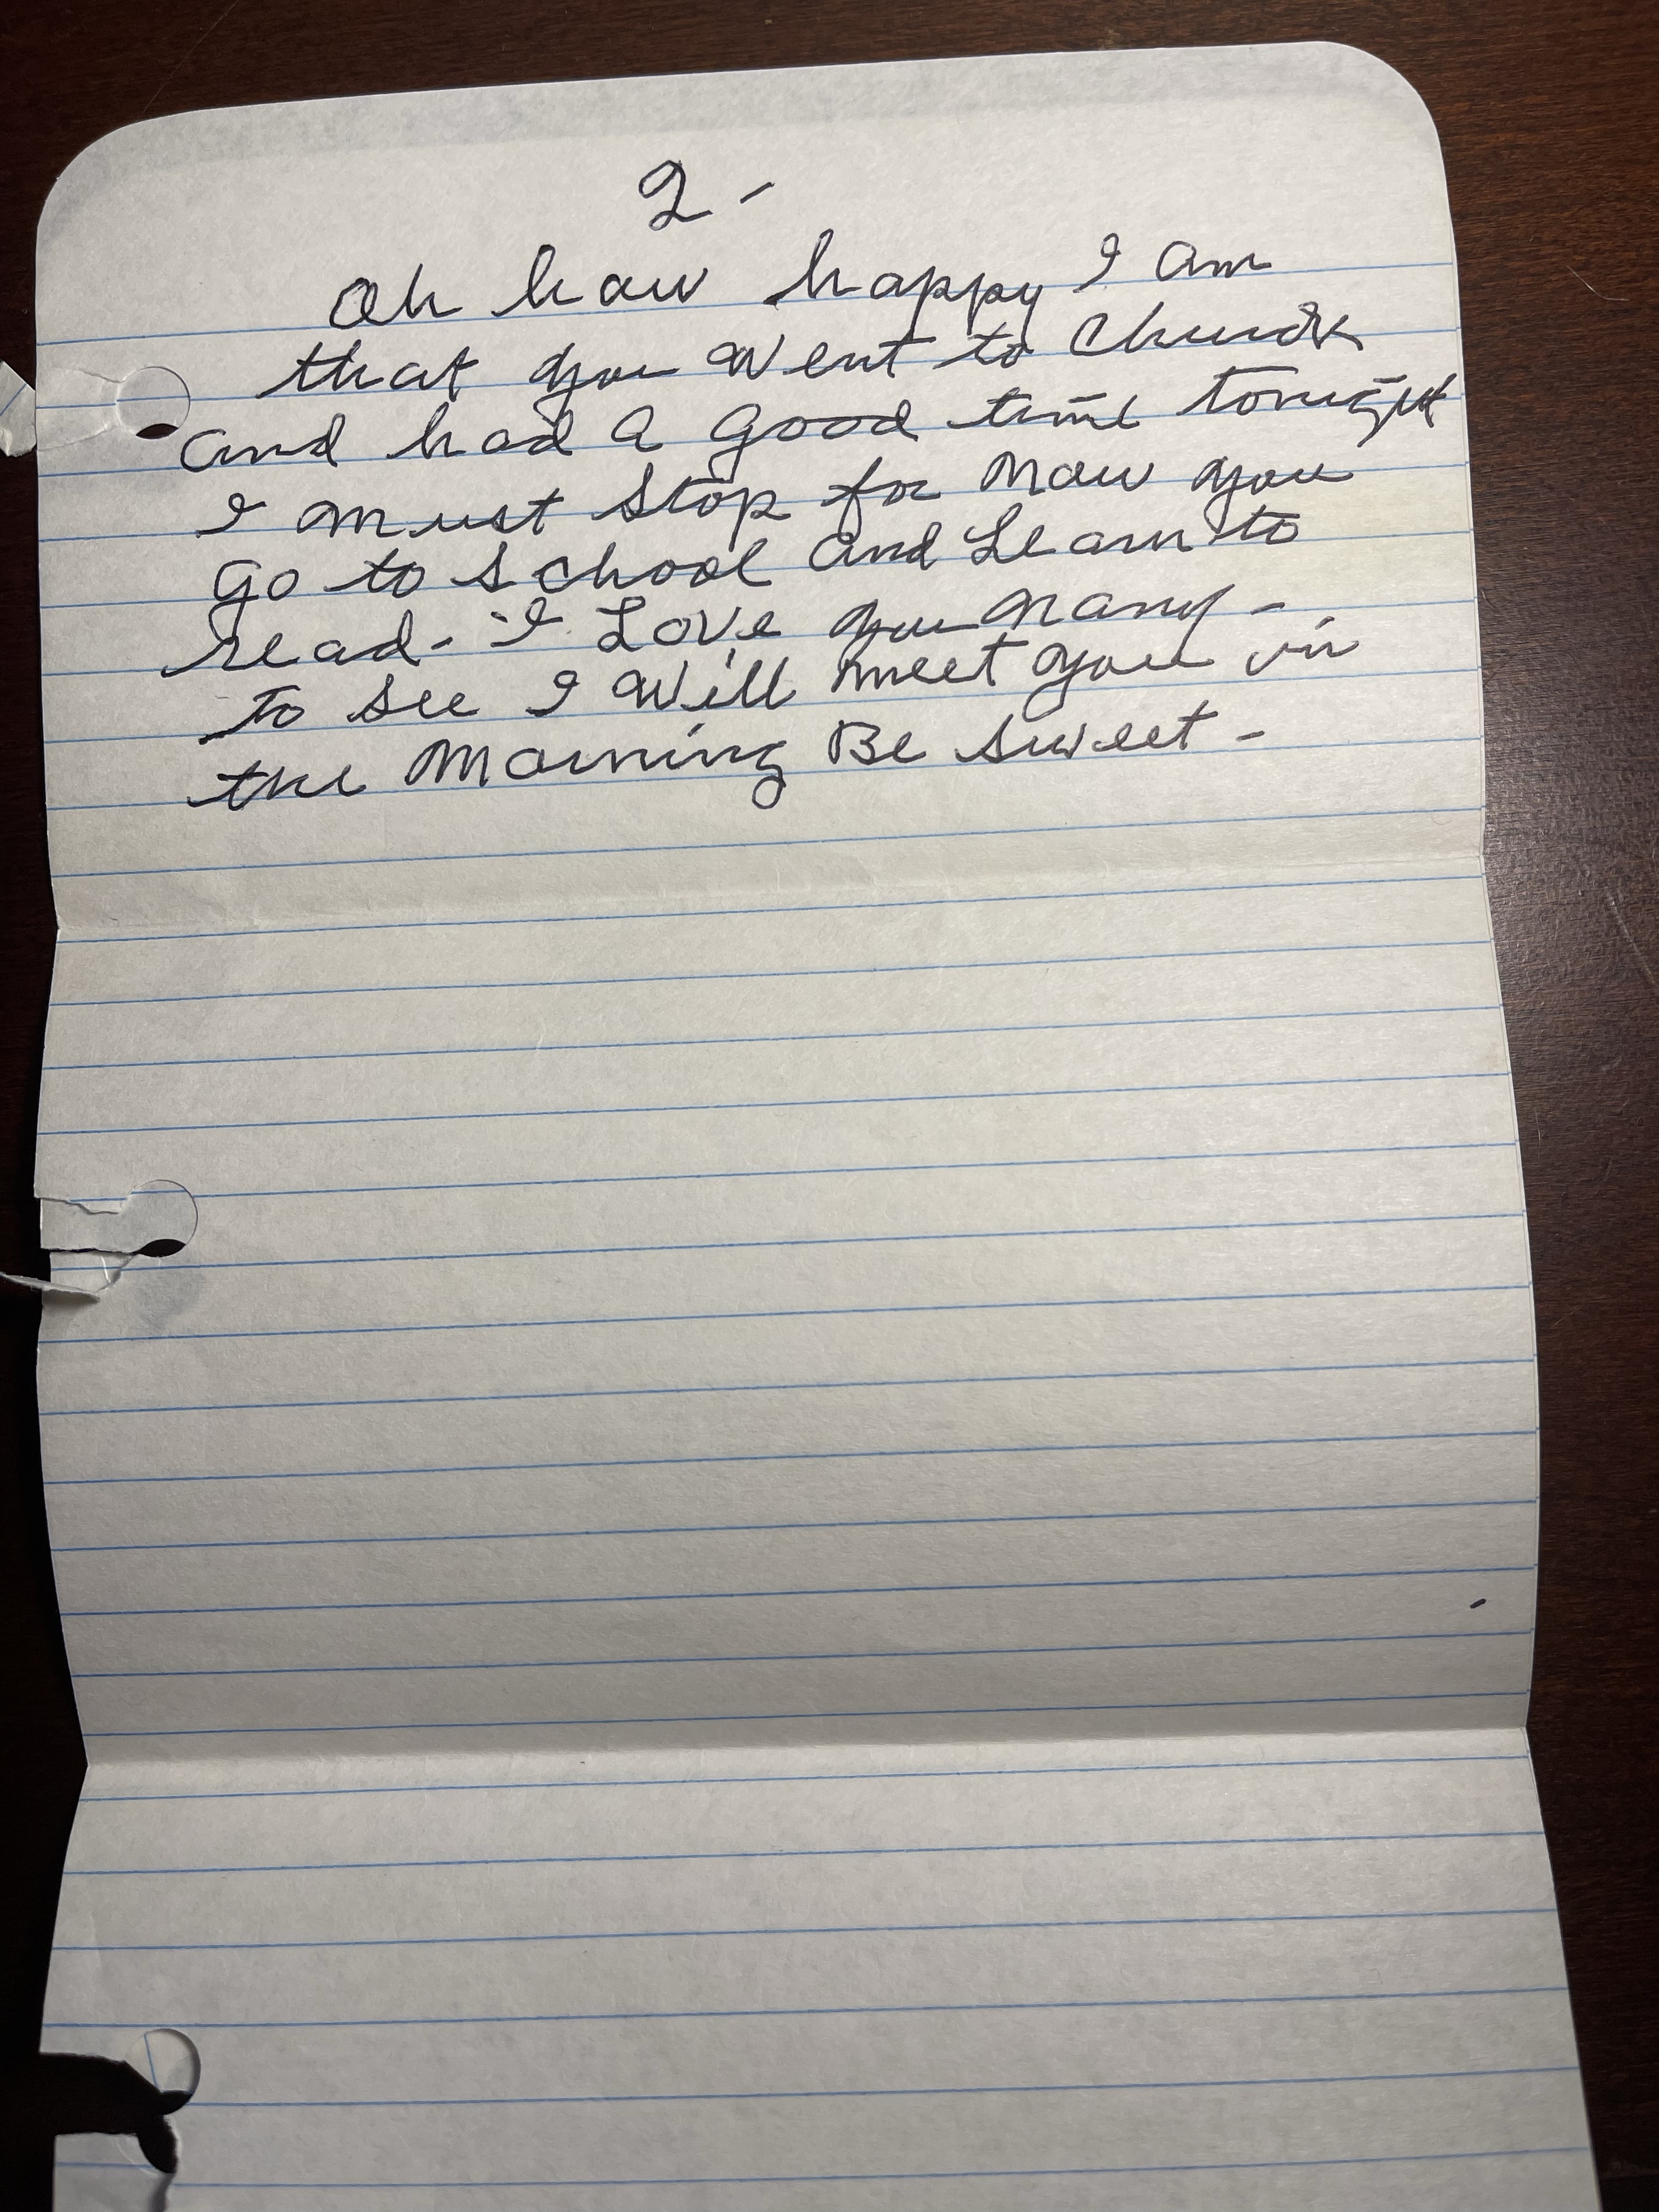 2 -
Oh how happy I am
that you went to Church
and had a good time tonight
I must stop for now you
go to school and Learn to
read - I Love you many -
to see I will meet you in
the Morning Be sweet -